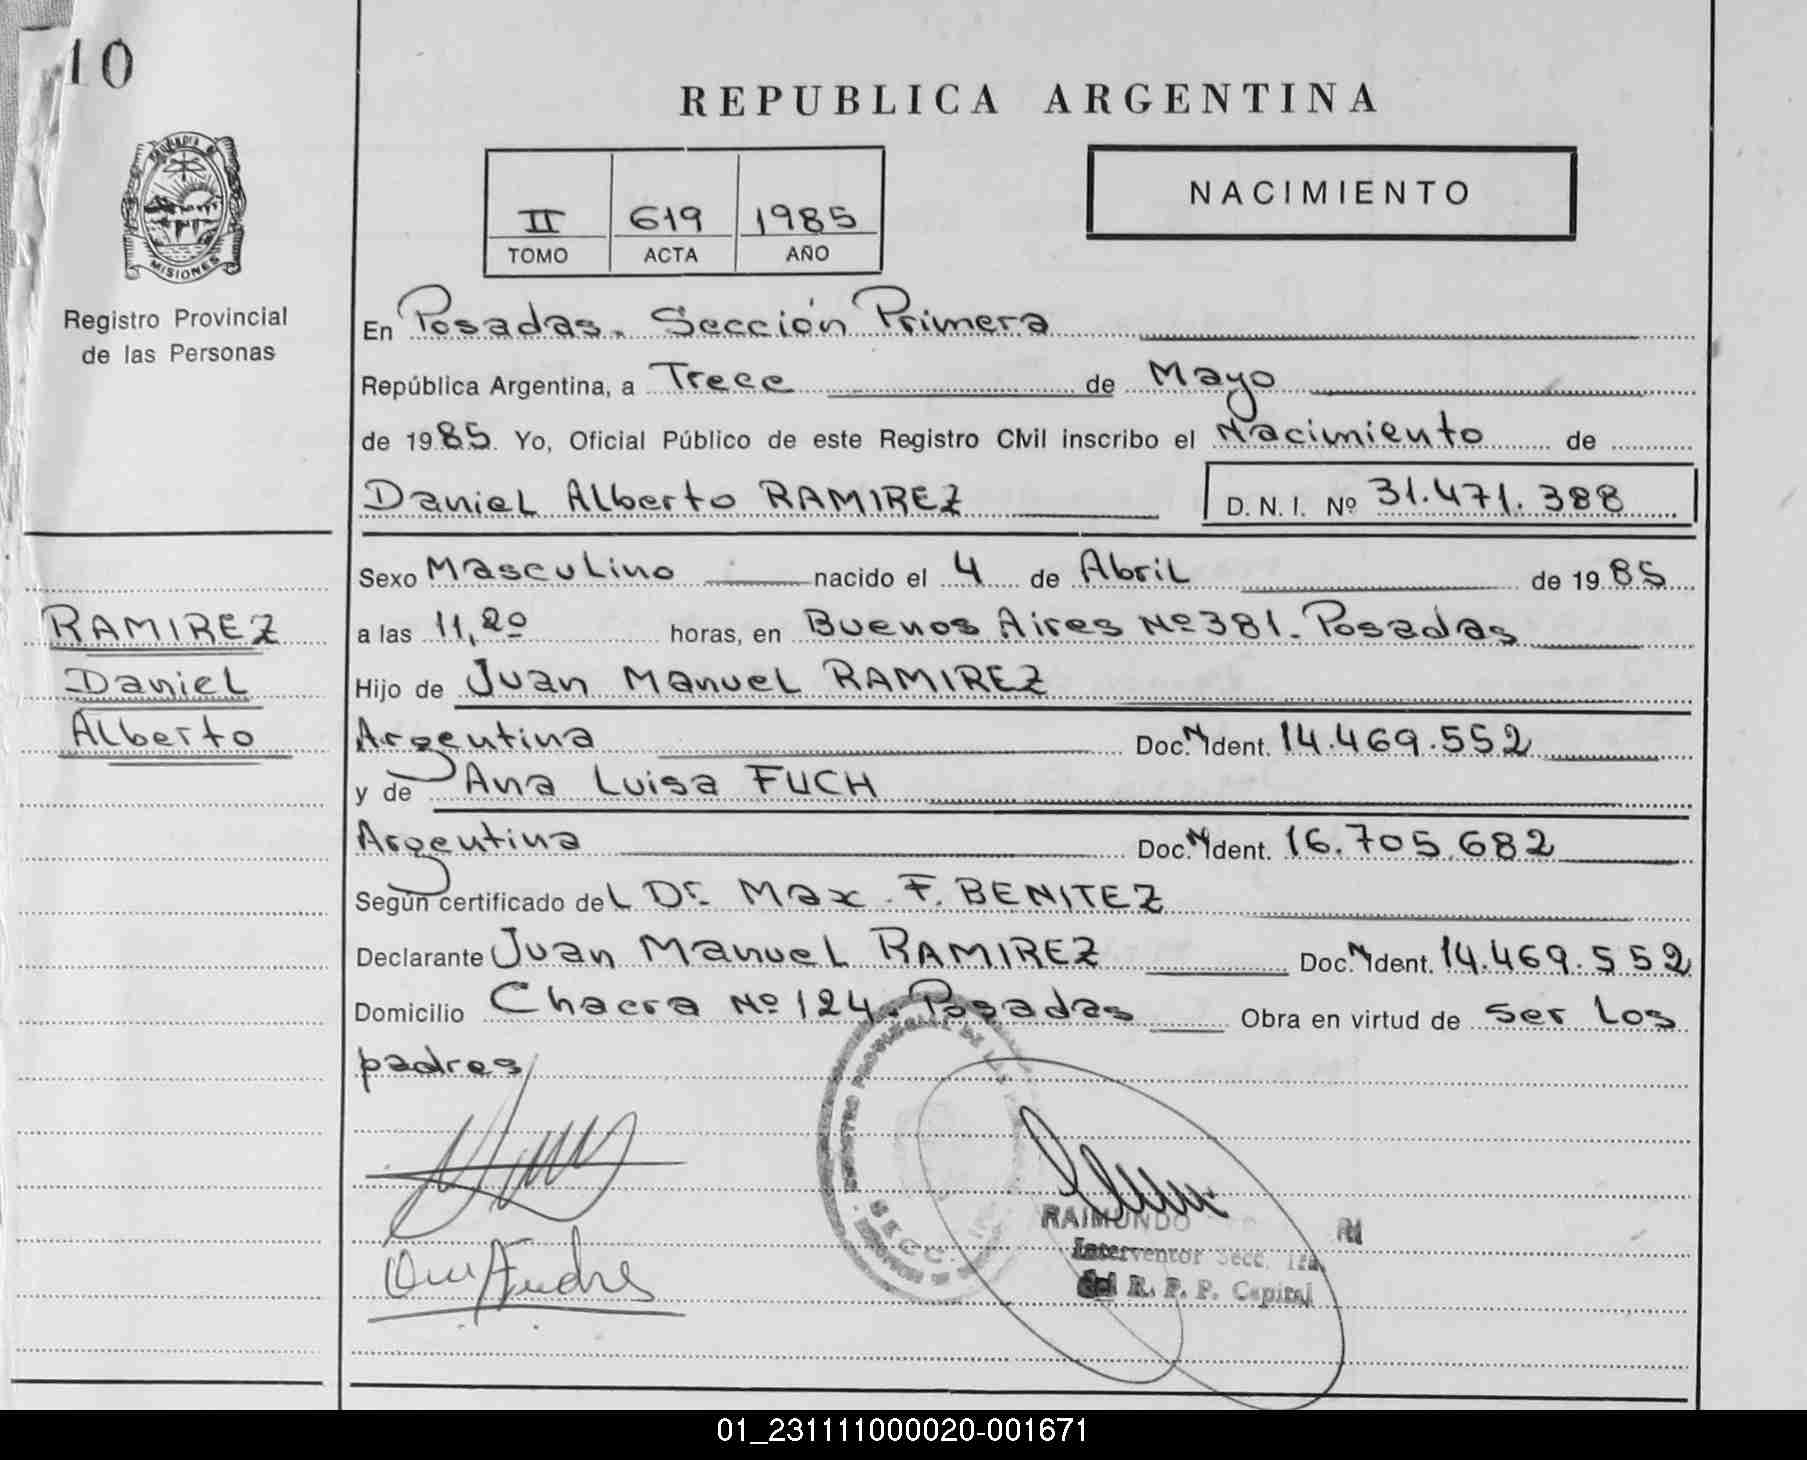 10
REPUBLICA ARGENTINA
II 619 1985
TOMO ACTA AÑO
NACIMIENTO
MISIONES
Registro Provincial
de las Personas
En Posadas. Sección Primera
República Argentina, a Trece de Mayo
de 1985. Yo, Oficial Público de este Registro Civil inscribo el Nacimiento de
Daniel Alberto RAMIREZ D.N.I. Nº 31.471.388
Sexo Masculino nacido el 4 de Abril de 1985
a las 11,20 horas, en Buenos Aires Nº 381. Posadas
Hijo de Juan Manuel RAMIREZ
Argentina Doc. N Ident. 14.469.552
y de Ana Luisa FUCH
Argentina Doc. N Ident. 16.705.682
Según certificado del Dr. Max. F. BENITEZ
Declarante Juan Manuel RAMIREZ Doc. N Ident. 14.469.552
Domicilio Chacra Nº 124. Posadas Obra en virtud de ser los
padres
RAMIREZ
Daniel
Alberto
RAIMUNDO
Interventor Secc. 1ra.
del R. P. P. Capital
01_231111000020-001671